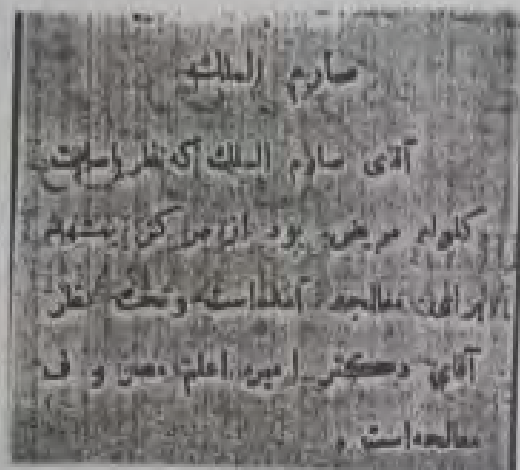 صارم الملک
آقای صارم الملک که نظر باصابت
گلوله مریض بود از مرکز بمشهد
برای معالجه آمده است و تحت نظر
آقای دکتر امیر اعلم مصروف
معالجه است .